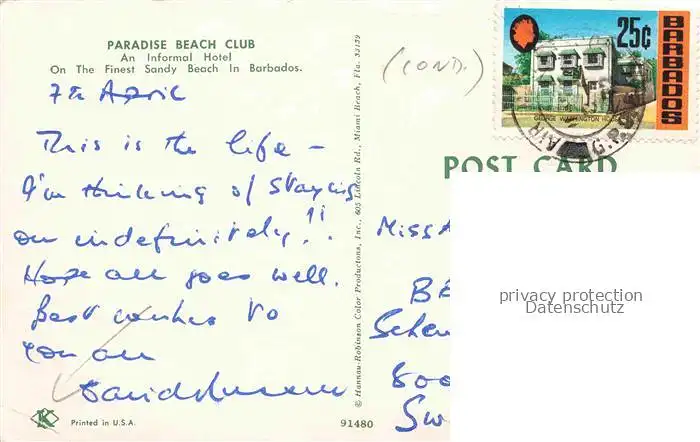 PARADISE BEACH CLUB
An Informal Hotel
On The Finest Sandy Beach In Barbados.
7th April
This is the life –
I'm thinking of staying
on indefinitely!!
Hope all goes well.
Best wishes to
you all
Printed in U.S.A.
91480
© Hannau-Robinson Color Productons, Inc., 605 Lincoln Rd., Miami Beach, Fla. 33139
(COND.)
25¢
BARBADOS
GEORGE WASHINGTON HOUSE
AIR
G.P.O.
POST CARD
Miss A
BE
800
Sw
privacy protection
Datenschutz